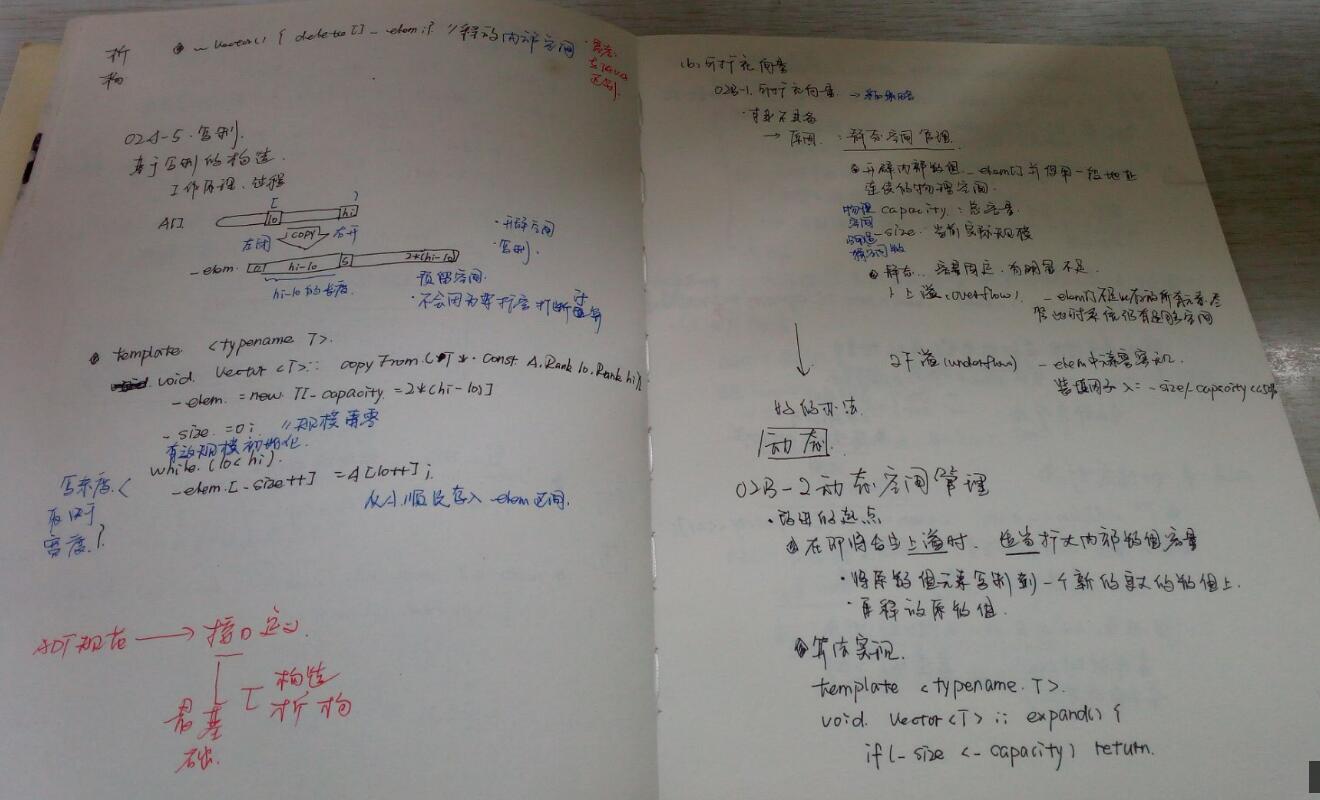 析构
~vector() { delete[] _elem; } //释放内部空间
02A-5. 复制.
基于复制的构造.
工作原理、过程
[ )
A[] lo hi
左闭 copy 右开
_elem. 0 hi-lo S 2*(hi-lo)
hi-lo的长度.
·开辟空间
·复制.
预留空间.
·不会因为要扩容打断
template <typename T>.
void Vector<T>:: copyFrom(T* const A, Rank lo, Rank hi),
_elem. = new T[_capacity = 2*(hi-lo)]
_size. = 0; //规模清零
有效规模初始化
while (lo < hi).
_elem.[_size++] = A[lo++];
从小顺 存入_elem区间.
复杂度
ADT规范 → 接口定义.
最基础.
构造
析构
(b) 可扩充向量
02B-1. 可扩充向量. →
→ 原因: 静态空间管理.
开辟内部数组_elem[]并使用一段地址
连续的物理空间.
物理空间
_capacity: 总容量.
_size. 当前实际规模
静态.. 容量固定, 有明显不足.
1 上溢(overflow). _elem[]不足以存放所有元素. 尽
管此时系统仍有足够空间
2下溢(underflow) _elem中 寥寥无几.
装填因子 λ = _size/_capacity << 50%
好的办法.
动态
02B-2 动态空间管理
在即将发生上溢时. 适当扩大内部数组容量
·将原数组元素复制到一个新的更大的数组上.
·再释放原数组.
算法实现.
template <typename T>.
void. Vector<T>:: expand() {
if(_size <_capacity) return.